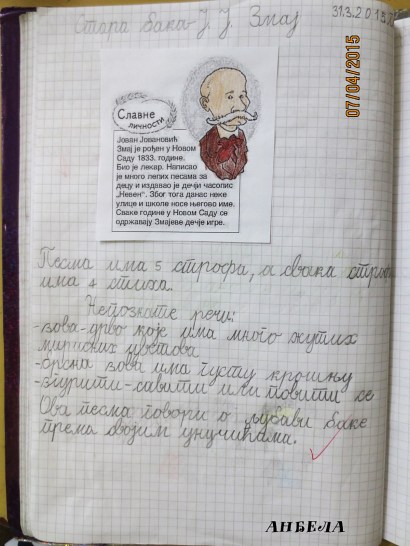 Стара бака Ј. Ј. Змај
31.3.2015.
07/04/2015
Славне
личности
Јован Јовановић
Змај је рођен у Новом
Саду 1833. године.
Био је лекар. Написао
је много лепих песама за
децу и издавао је дечји часопис
„Невен“. Због тога данас неке
улице и школе носе његово име.
Сваке године у Новом Саду се
одржавају Змајеве дечје игре.
Песма има 5 строфа, а свака строфа
има 4 стиха.
Непознате речи:
-зова-дрво које има много жутих
мирисних цветова
-брсна зова има густу крошњу
-згурити-савити или повити се
Ова песма говори о љубави баке
према својим унучићима.
АНЂЕЛА